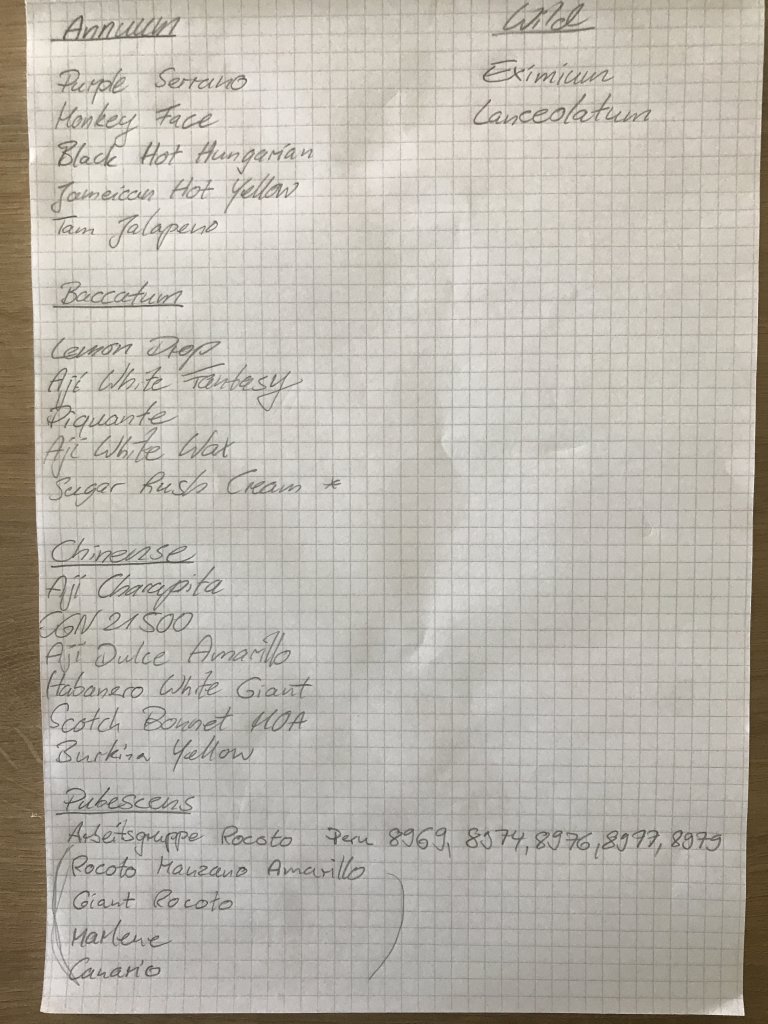 Annuum
Purple Serrano
Monkey Face
Black Hot Hungarian
Jameican Hot Yellow
Tam Jalapeno
Baccatum
Lemon Drop
Ají White Fantasy
Piquante
Ají White Wax
Sugar Rush Cream *
Chinense
Ají Charapita
CGN 21500
Ají Dulce Amarillo
Habanero White Giant
Scotch Bonnet MOA
Burkina Yellow
Pubescens
Arbeitsgruppe Rocoto Peru 8969, 8974, 8976, 8977, 8979
(Rocoto Manzano Amarillo
Giant Rocoto
Marlene
Canario)
Wild
Eximium
Lanceolatum